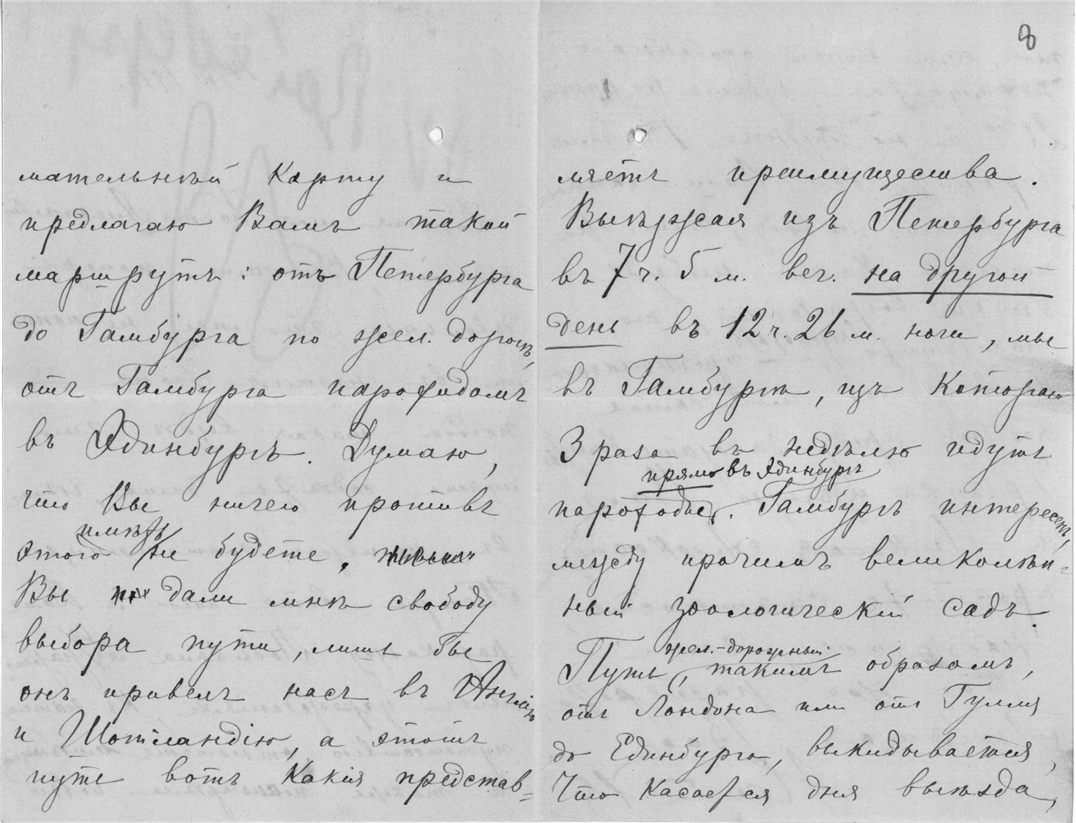 мательнѣй Карту и
предлагаю Вамъ такой
маршрутъ: отъ Петербурга
до Гамбурга по жел. дорогѣ,
отъ Гамбурга пароходомъ
въ Эдинбургъ. Думаю,
что Вы ничего противъ
этого имѣть не будете.
Вы дали мнѣ свободу
выбора пути, лишь бы
онъ привелъ насъ въ Англію
и Шотландію, а этотъ
путь вотъ Какія представ=
8
ляетъ преимущества.
Выѣзжая изъ Петербурга
въ 7 ч. 5 м. веч. на другой
день въ 12 ч. 26 м. ночи, мы
въ Гамбургѣ, изъ Котораго
3 раза въ недѣлю идутъ
прямо въ Эдинбургъ
пароходы. Гамбургъ интересенъ,
между прочимъ великолѣп=
ный зоологическій садъ.
жел.-дорожный
Путь, такимъ образомъ,
отъ Лондона или отъ Гулля
до Единбурга, выкидывается,
Что Касается дня выѣзда,